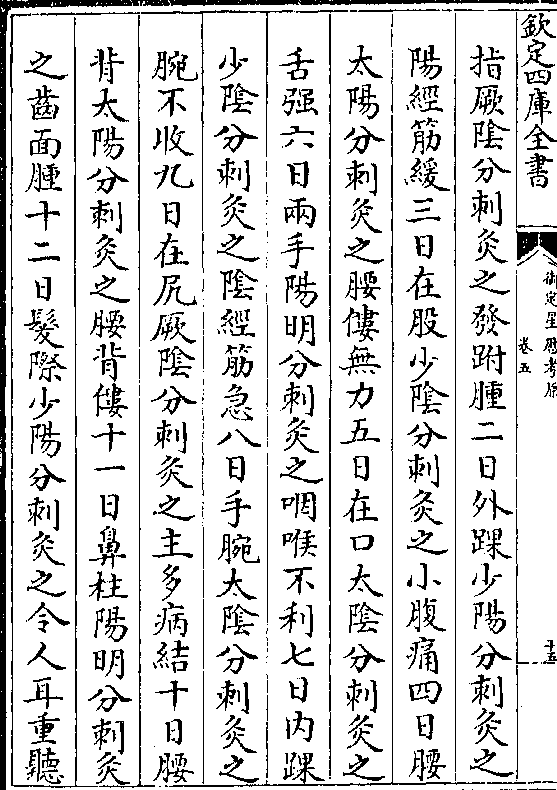 欽定四庫全書
御定星歷考原
卷五
十五
指厥陰分刺灸之發跗腫二日外踝少陽分刺灸之
陽經筋緩三日在股少陰分刺灸之小腹痛四日腰
太陽分刺灸之腰僂無力五日在口太陰分刺灸之
舌强六日兩手陽明分刺灸之咽喉不利七日内踝
少陰分刺灸之陰經筋急八日手腕太陰分刺灸之
腕不收九日在尻厥陰分刺灸之主多病結十日腰
背太陽分刺灸之腰背僂十一日鼻柱陽明分刺灸
之齒面腫十二日髮際少陽分刺灸之令人耳重聽